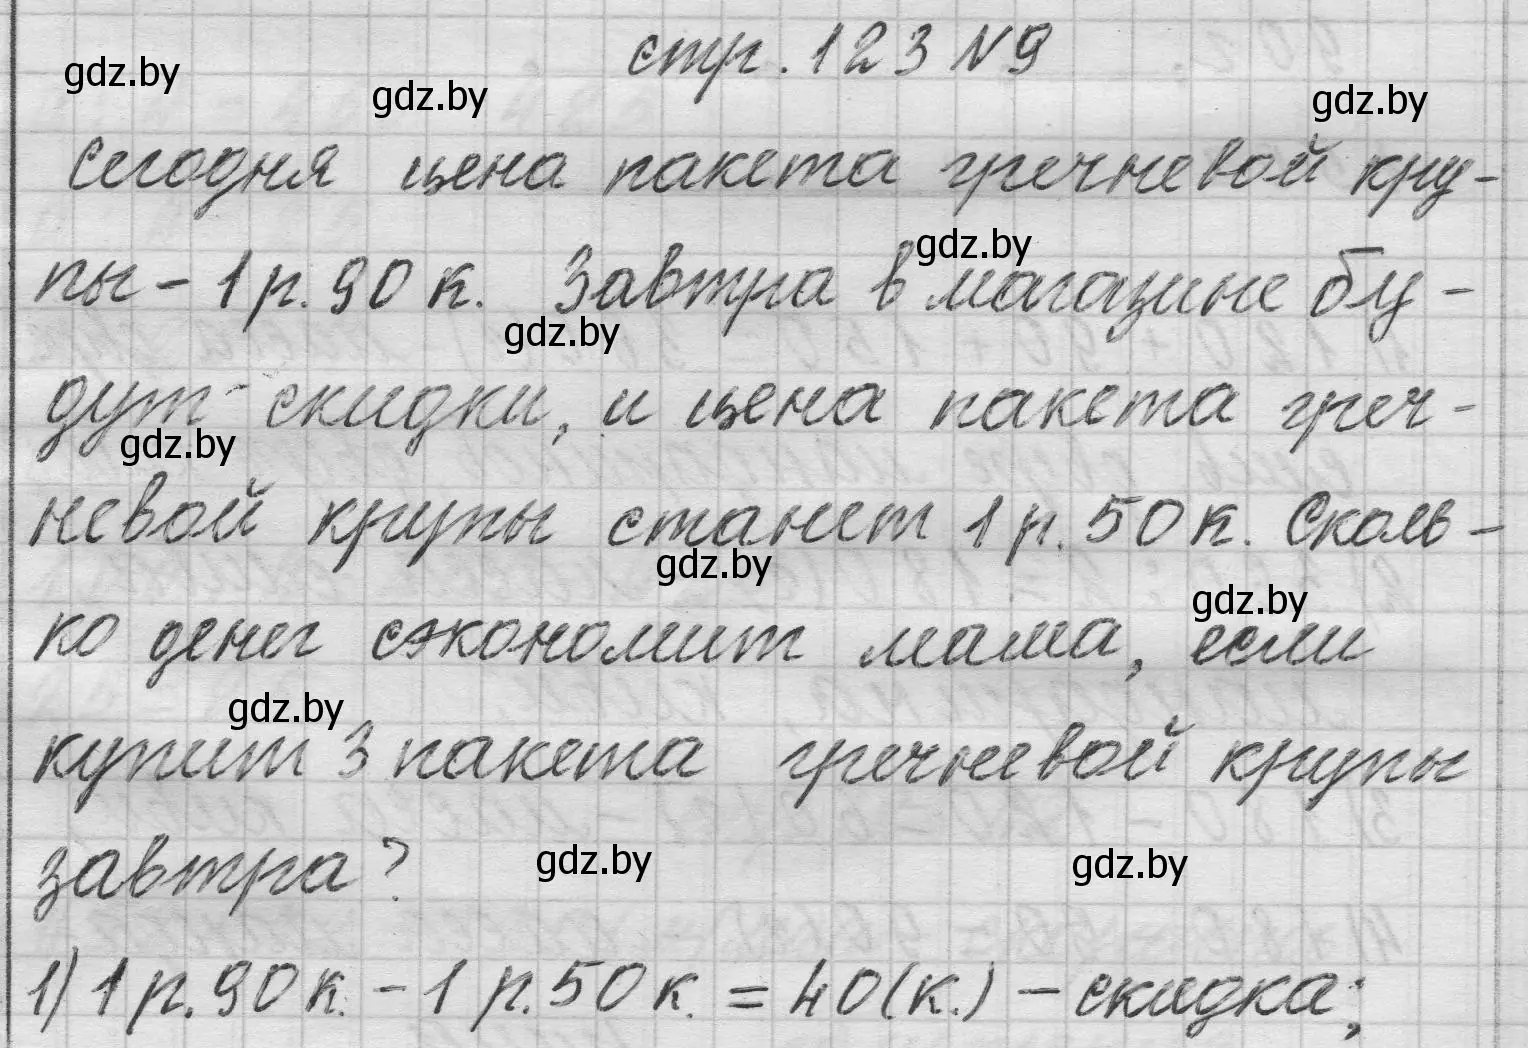 стр. 123 №9
gdz.by
gdz.by
gdz.by
Сегодня цена пакета гречневой кру-
gdz.by
пы - 1 р. 90 к. Завтра в магазине бу-
gdz.by
дут скидки, и цена пакета греч-
gdz.by
невой крупы станет 1 р. 50 к. Сколь-
gdz.by
gdz.by
ко денег сэкономит мама, если
gdz.by
купит 3 пакета гречневой крупы
завтра?
gdz.by
gdz.by
1) 1 р. 90 к. - 1 р. 50 к. = 40 (к.) - скидка;